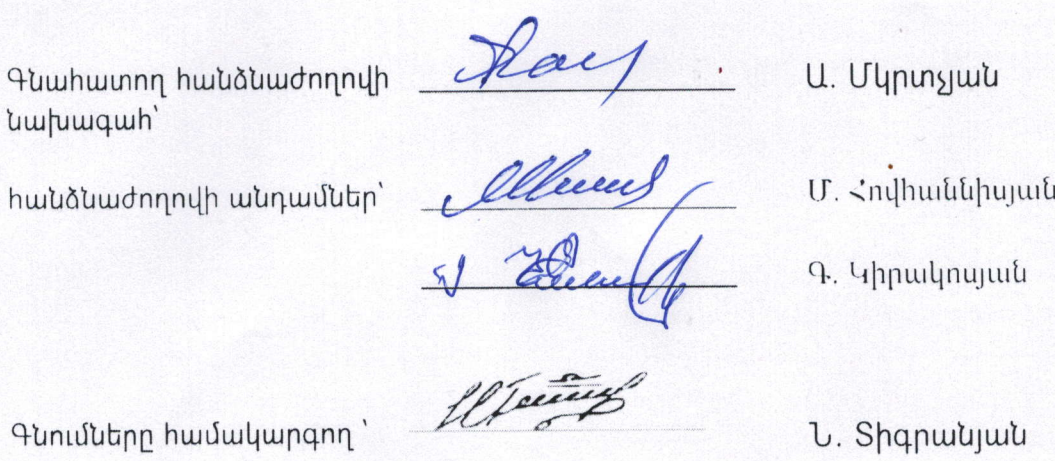 Գնահատող հանձնաժողովի Ա. Մկրտչյան
նախագահ՝
հանձնաժողովի անդամներ՝ Մ. Հովհաննիսյան
Գ. Կիրակոսյան
Գնումները համակարգող ՝ Ն. Տիգրանյան